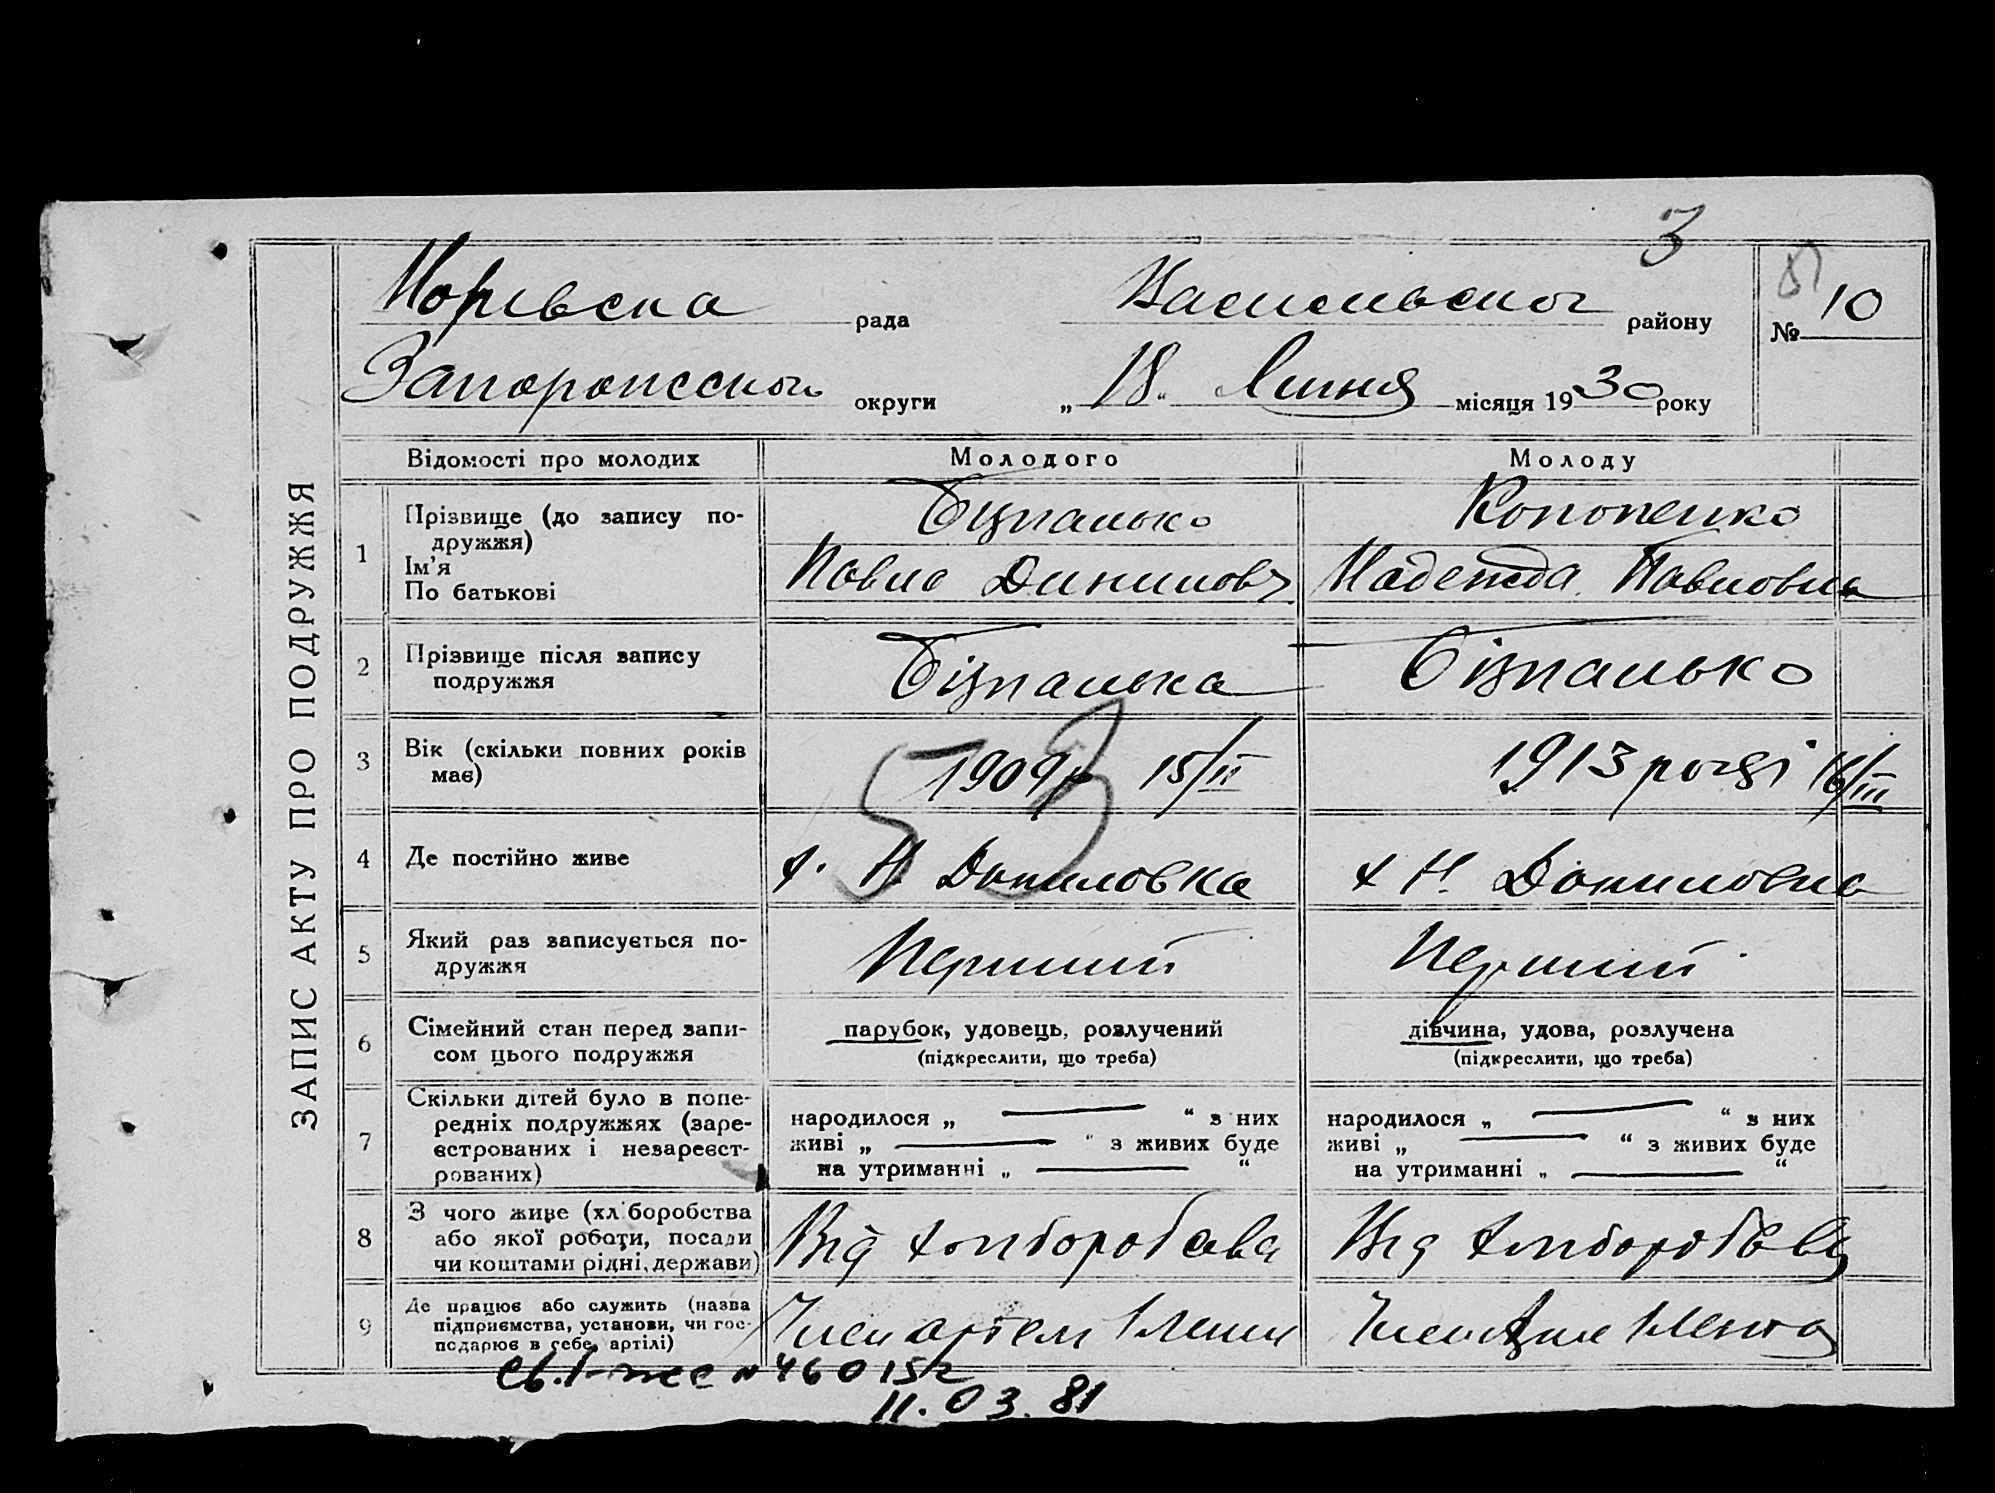 3
ЗАПИС АКТУ ПРО ПОДРУЖЖЯ
рада району
№ 10
Запорожской округи „18“ Липня місяця 1930 року
Відомості про молодих Молодого Молоду
1 Прізвище (до запису по-
дружжя)
Ім'я
По батькові
Кононенко
Павло Данилов Надежда Павловна
2 Прізвище після запису
подружжя
3 Вік (скільки повних років
має)
1909 р 15/II 1913 року 16/III
53
4 Де постійно живе
х. Н. Даниловка х Н. Даниловка
5 Який раз записується по-
дружжя
Перший Перший
6 Сімейний стан перед запи-
сом цього подружжя
парубок, удовець, розлучений
(підкреслити, що треба)
дівчина, удова, розлучена
(підкреслити, що треба)
7 Скільки дітей було в попе-
редніх подружжях (заре-
єстрованих і незареєст-
рованих)
народилося „ — “ з них
живі „ — “ з живих буде
на утриманні „ — “
народилося „ — “ з них
живі „ — “ з живих буде
на утриманні „ — “
8 З чого живе (хліборобства
або якої роботи, посади
чи коштами рідні, держави)
Від хліборобства Від хліборобства
9 Де працює або служить (назва
підприємства, установи, чи гос-
подарює в себе, артілі)
Член артели
№ 460152
11.03.81